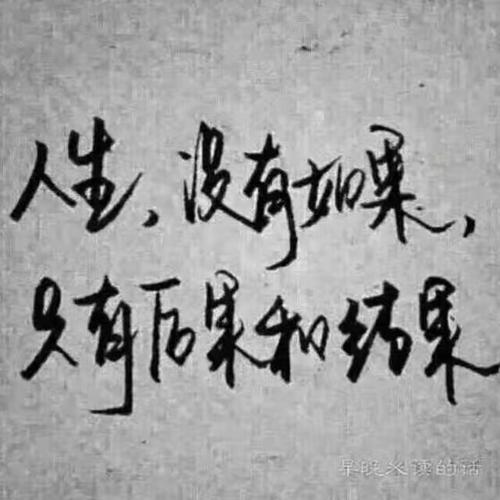 人生,没有如果,
只有后果和结果
早晚必读的话